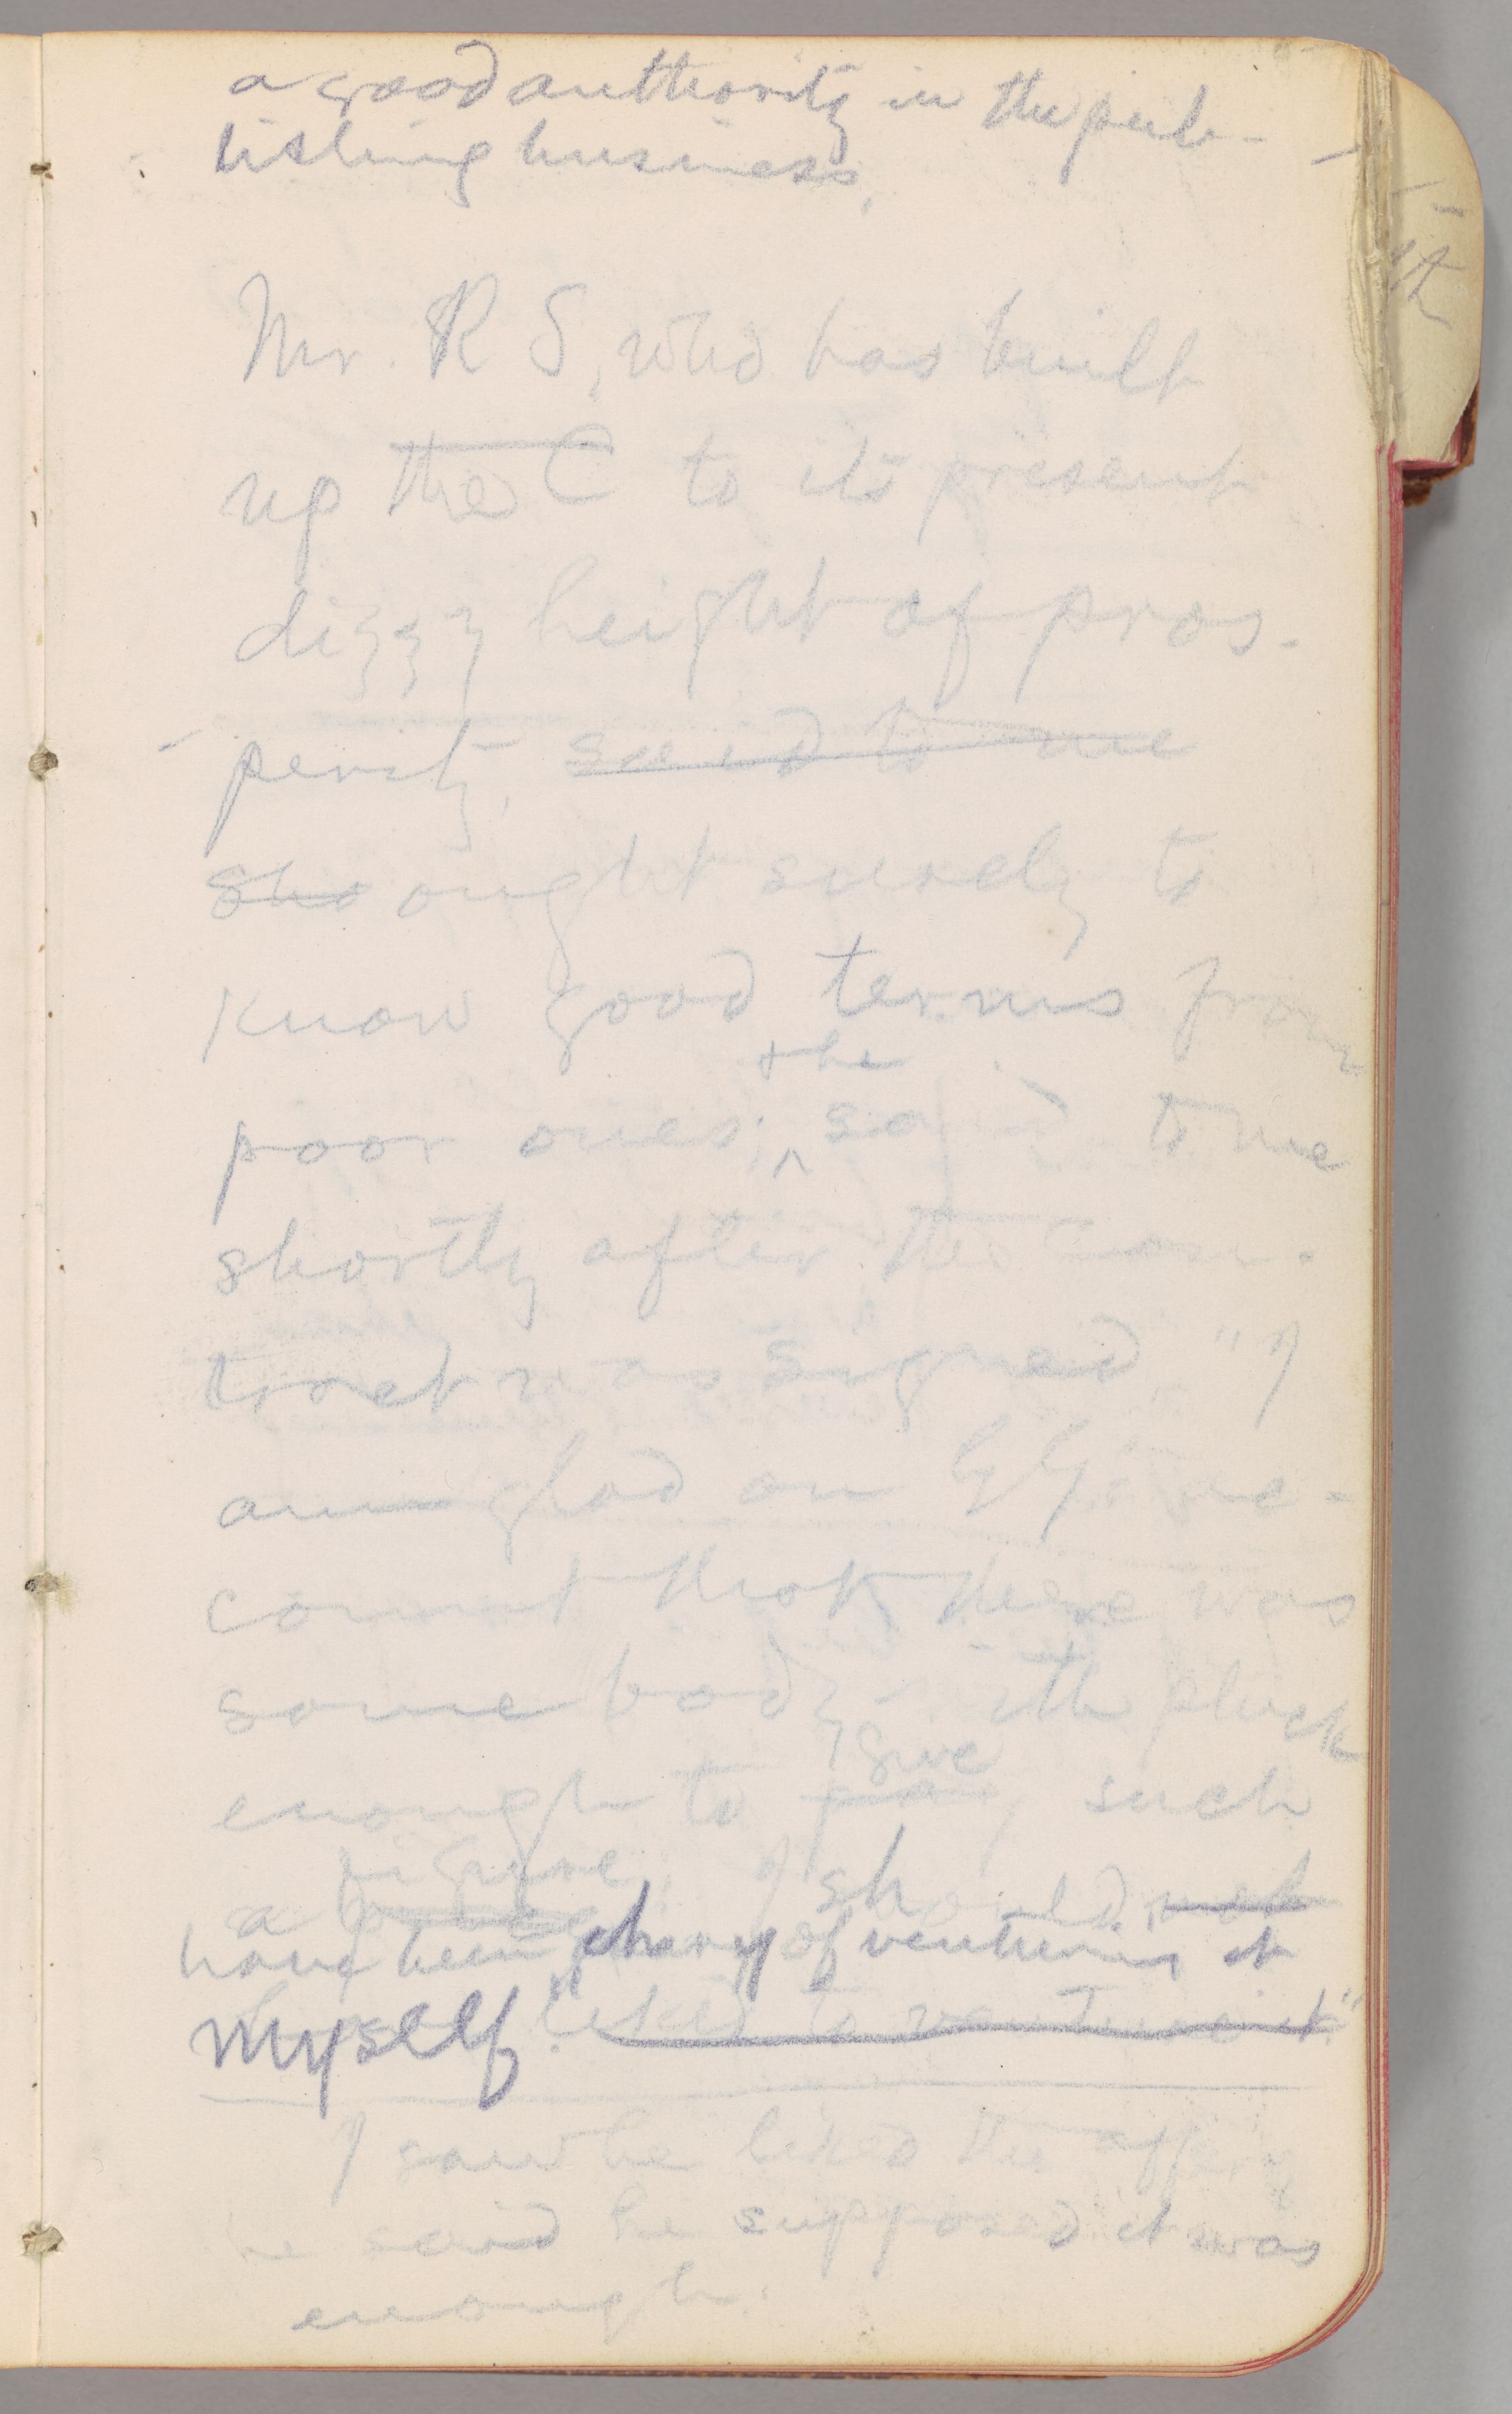 a good authority in the pub-
lishing business.
Mr. R S, who has built
up the C to its present
dizzy height of pros-
perity, said to me
sho ought surely to
know good terms from
& he
poor ones; ^ said to me
shortly after the con-
tract was signed, "I
am glad on G G's ac-
count that there was
somebody with pluck
give
enough to pay such
figure; I should not
a
have been chary of venturing it
myself." liked to venture it."
I saw he liked the offer, &
he said he supposed it was
enough.